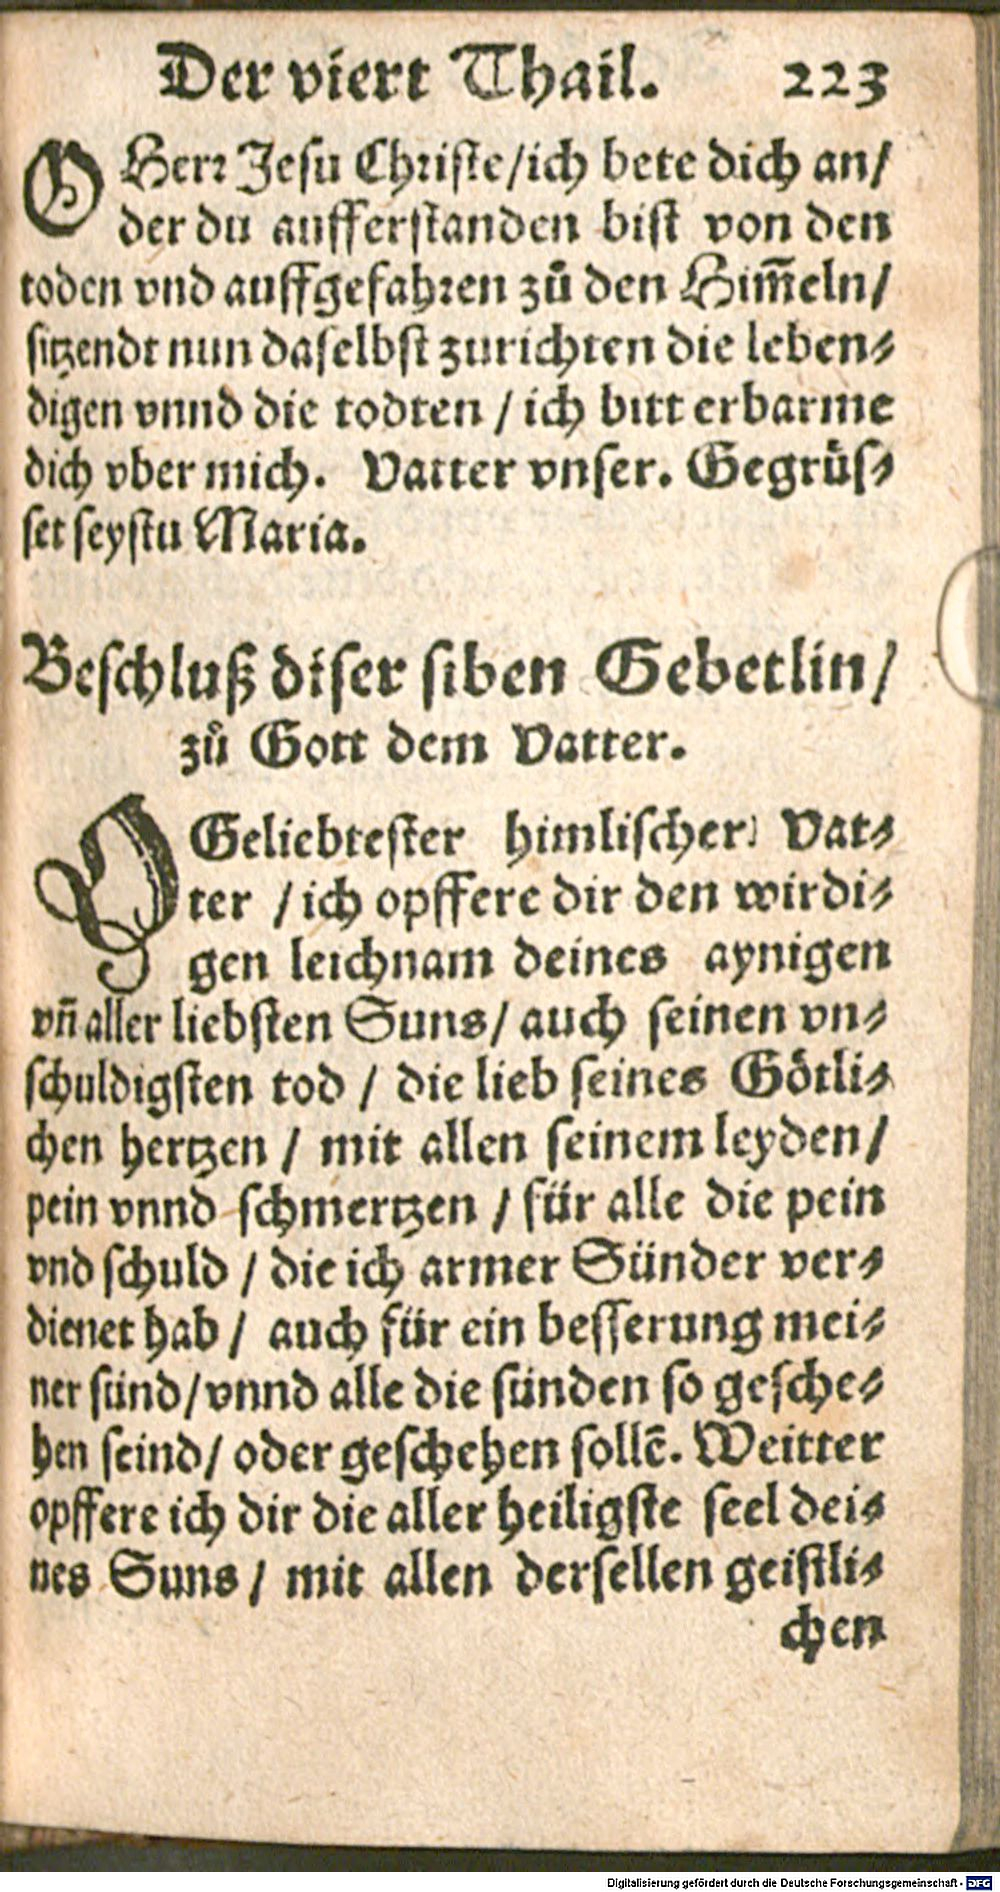 Der viert Thail. 223
O Herr Jesu Christe/ich bete dich an/
der du aufferstanden bist von den
toden vnd auffgefahren zuͦ den Him̃eln/
sitzendt nun daselbst zurichten die leben⸗
digen vnnd die todten / ich bitt erbarme
dich vber mich. Vatter vnser. Gegruͤs⸗
set seystu Maria.
Beschluß diser siben Gebetlin/
zuͦ Gott dem Vatter.
O Geliebtester himlischer Vat⸗
ter / ich opffere dir den wirdi⸗
gen leichnam deines aynigen
vñ aller liebsten Suns/ auch seinen vn⸗
schuldigsten tod / die lieb seines Goͤtli⸗
chen hertzen / mit allen seinem leyden/
pein vnnd schmertzen / für alle die pein
vnd schuld / die ich armer Sünder ver⸗
dienet hab / auch für ein besserung mei⸗
ner sünd/vnnd alle die sünden so gesche⸗
hen seind/ oder geschehen sollē. Weitter
opffere ich dir die aller heiligste seel dei⸗
nes Suns / mit allen dersellen geistli⸗
chen
Digitalisierung gefördert durch die Deutsche Forschungsgemeinschaft - DFG